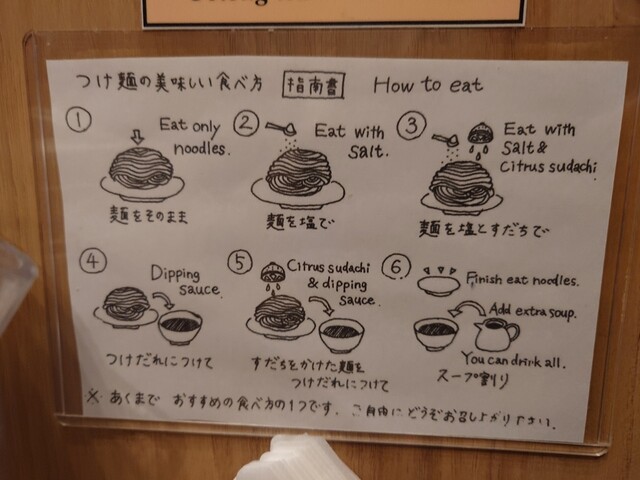 つけ麺の美味しい食べ方 指南書 How to eat
① Eat only
noodles.
麺をそのまま
② Eat with
Salt.
麺を塩で
③ Eat with
Salt &
Citrus sudachi
麺を塩とすだちで
④ Dipping
sauce
つけだれにつけて
⑤ Citrus sudachi
& dipping
sauce.
すだちをかけた麺を
つけだれにつけて
⑥ Finish eat noodles.
Add extra soup.
You can drink all.
スープ割り
※ あくまで おすすめの食べ方の1つです. ご自由にどうぞお召し上がり下さい.